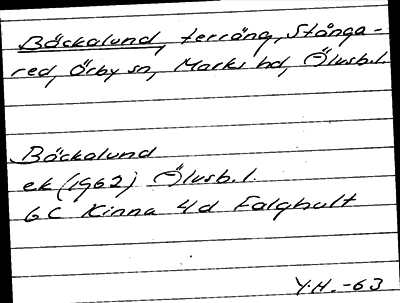 Bäckalund, terräng, Stånga-
red, Örby sn, Marks hd, Älvsb.l.
Bäckalund
ek (1962) Älvsb.l.
6C Kinna 4d Falghult
Y.H. -63